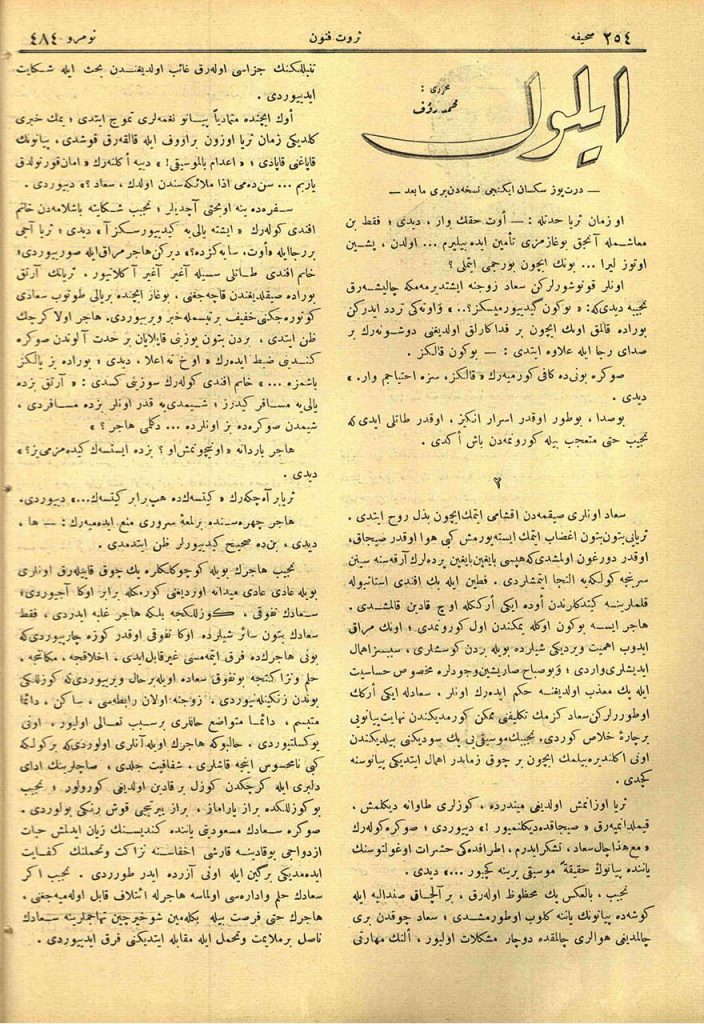 ٢٥٤ صحیفه
ثروت فنون
نومرو ٤٨٤
ایلول
محرری :
محمد رؤف
— درت یوز سكسان ایكنجی نسخه‌دن بری مابعد —
او زمان ثریا حدتله : — أوت حقك وار ، دیدی ؛ فقط بن
معاشمله آنجق بوغازمزی تأمین ایده بیلیرم ... اولدن ، پشین
اوتوز لیرا ... بونك ایچون بورجمی ایتملی ؟
اونلر قونوشورلركن سعاد زوجنه ایشتدیرمه‌مكه چالیشه‌رق
نجیبه دیدی‌كه : « بوكون گیدییورمیسكز ؟.. » واونه‌كی تردد ایدركن
بوراده قالمق اونك ایچون بر فداكارلق اولدیغنی دوشونه‌رك بر
صدای رجا ایله علاوه ایتدی : — بوكون قالكز .
صوكره بونی‌ده كافی كورمیه‌رك « قالكز ، سزه احتیاجم وار. »
دیدی .
بوصدا ، بوطور اوقدر اسرار انكیز ، اوقدر طاتلی ایدی‌كه
نجیب حتی متعجب بیله كورونمه‌دن باش أكدی .
٢
سعاد اونلری صیقمه‌دن اقشامی ایتمك‌ایچون بذل روح ایتدی .
ثریایی بتون‌بتون اغضاب ایتمك ایسته‌یورمش كبی هوا اوقدر صیجاق،
اوقدر دورغون اولمشدی‌كه هپسی بایغین بایغین پرده‌لرك آرقه‌سنه سینن
سرینجه كولكه‌یه التجا ایتمشلردی . فطین ایله بك افندی استانبوله
قلملرینه كیتدكلرندن أوده ایكی أرككله اوچ قادین قالمشدی .
هاجر ایسه بوكون اوكله یمكندن اول كورونمدی ؛ اونك مراق
ایدوب اهمیت ویردیكی شیلرده بویله بردن كوسشلری ، سببسز اهمال
ایدیشلری واردی ؛ وبوصباح صاریشین وجودلره مخصوص حساسیت
ایله پك معذب اولدیغنه حكم ایده‌رك اونلر ، سعادله ایكی أركك
اوطوررلركن سعاد كزمك تكلیفنی ممكن كورمدیكندن نهایت پیانویی
برچارهٔ خلاص كوردی. نجیبك موسیقی‌یی پك سودیكنی بیلدیكندن
اونی اكلندیره بیلمك ایچون بر چوق زماندر اهمال ایتدیكی پیانوسنه
كچدی .
ثریا اوزانمش اولدیغی میندرده ، كوزلری طاوانه دیكلمش ،
قیملدانمیه‌رق « صیجاقده دیكلنمیور !» دییوردی ؛ صوكره كوله‌رك
« مع‌هذا چال سعاد ، تشكر ایدرم ، اطرافده‌كی حشرات اوغولتوسنك
یاننده پیانوك حقیقةً موسیقی یرینه كچیور ...» دیدی .
نجیب ، بالعكس پك محظوظ اوله‌رق ، بر آلچاق صندالیه ایله
كوشه‌ده پیانونك یاننه كلوب اوطورمشدی ؛ سعاد چوقدن بری
چالمدیغی هوالری چالمقده دوچار مشكلات اولیور ، ألنك مهارتی
تنبللكنك جزاسی اوله‌رق غائب اولدیغندن بحث ایله شكایت
ایدییوردی .
أوك ایچنده متمادیاً پیانو نغمه‌لری تموج ایتدی ؛ یمك خبری
كلدیكی زمان ثریا اوزون براووف ایله قالقه‌رق قوشدی ، پیانونك
قاپاغنی قاپادی ؛ « اعدام بالموسیقی !» دییه أكلنه‌رك « امان قورتولدق
یاربم ... سن‌ده‌می اذا ملائكه‌سندن اولدك ، سعاد ؟» دییوردی .
سفره‌ده ینه اوبحثی آچدیلر ؛ نجیب شكایته باشلامه‌دن خانم
افندی كوله‌رك « ایشته یالی یه كیدییورسكز آ » دیدی ؛ ثریا آجی
بررجا ایله «أوت، سایه‌كزده ؟» دیركن هاجر مراق ایله صورییوردی؛
خانم افندی طاتلی سسیله آغیر آغیر آكلاتیور ، ثریانك آرتق
بوراده صیقلدیغندن قاچه‌جغنی ، بوغاز ایچنده بریالی طوتوب سعادی
كوتوره‌جكنی خفیف بر تبسمله خبر ویرییوردی. هاجر اولا كرچك
ظن ایتدی ، بردن بتون یوزینی قاپلایان بر حدت آلوندن صوكره
كندینی ضبط ایده‌رك « اوخ نه اعلا ، دیدی ؛ بوراده بز یالكز
باشمزه ... » خانم افندی كوله‌رك سوزینی كسدی : « آرتق بزده
یالی یه مسافر كیدرز ؛ شیمدی‌یه قدر اونلر بزده مسافردی ،
شیمدن صوكره‌ده بز اونلرده ... دكلمی هاجر ؟ »
هاجر باردانه « اونیچونمش او ؟ بزده ایستسه‌ك كیده‌مزمی‌یز؟»
دیدی .
ثریا بر آه چكه‌رك « كیتسه‌ك‌ده هپ برابر كیتسه‌ك...» دییوردی.
هاجر چهره‌سنده برلمعهٔ سروری منع ایده‌میه‌رك : — ها ،
دیدی ، بن‌ده صحیح كیدییورلر ظن ایتدمدی .
نجیب هاجرك بویله كوچوكلكلره پك چوق قاپیله‌رق اونلری
بویله عادی عادی میدانه اوردیغنی كورمكله برابر اوكا آجییوردی؛
سعادك تفوقی ، كوزللكجه بلكه هاجر غلبه ایدردی ، فقط
سعادك بتون سائر شیلرده اوكا تفوقی اوقدر كوزه چارپییوردی‌كه
بونی هاجرك‌ده فرق ایتمه‌مسی غیرقابل ایدی . اخلاقجه ، مكانتجه ،
حلم ونزاكتجه بوتفوق سعاده اویله برحال ویرییوردی‌كه كوزللكی
بوندن زنكینله‌نییوردی . زوجنه اولان رابطه‌سی ، ساكن ، دائما
متبسم ، دائما متواضع حالری برسبب تعالی اولیور ، اونی
یوكسلتیوردی . حالبوكه هاجرك اویله آنلری اولوردی‌كه بركولكه
كبی نامحسوس اینجه قاشلری . شفافیت جلدی ، صاچلرینك ادای
دلبری ایله كرچكدن كوزل بر قادین اولدیغی كورولور ؛ نجیب
بوكوزللكده براز یاراماز ، براز ییرتیجی قوش رنكی بولوردی .
صوكره سعادك مسعودیتی یاننده كندیسنك زیان ایدلمش حیات
ازدواجی بوقادینه قارشی اخفاسنه نزاكت وتحملنك كفایت
ایده‌مدیكی بركین ایله اونی آزرده ایدر طورردی . نجیب اكر
سعادك حلم واداره‌سی اولماسه هاجرله ائتلاف قابل اوله‌میه‌جغنی ،
هاجرك حتی فرصت بیله بكله‌مین شوخیرچین تهاجملرینه سعادك
ناصل برملایمت وتحمل ایله مقابله ایتدیكنی فرق ایدییوردی .